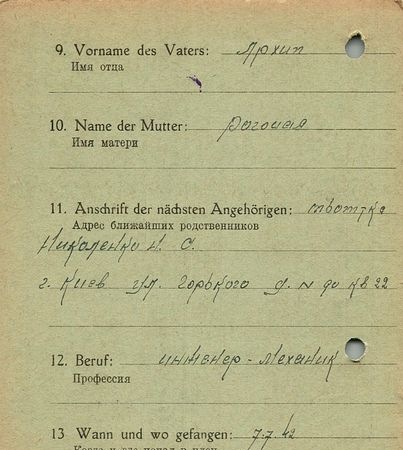 9. Vorname des Vaters: Архип
Имя отца
10. Name der Mutter: Рогоцая
Имя матери
11. Anschrift der nächsten Angehörigen:
Адрес ближайших родственников
Николенко Н. С.
г. Киев ул. Горького д. N 90 кв 22
12. Beruf: инженер - механик
Профессия
13 Wann und wo gefangen: 7.7.42
Когда и где попал в плен